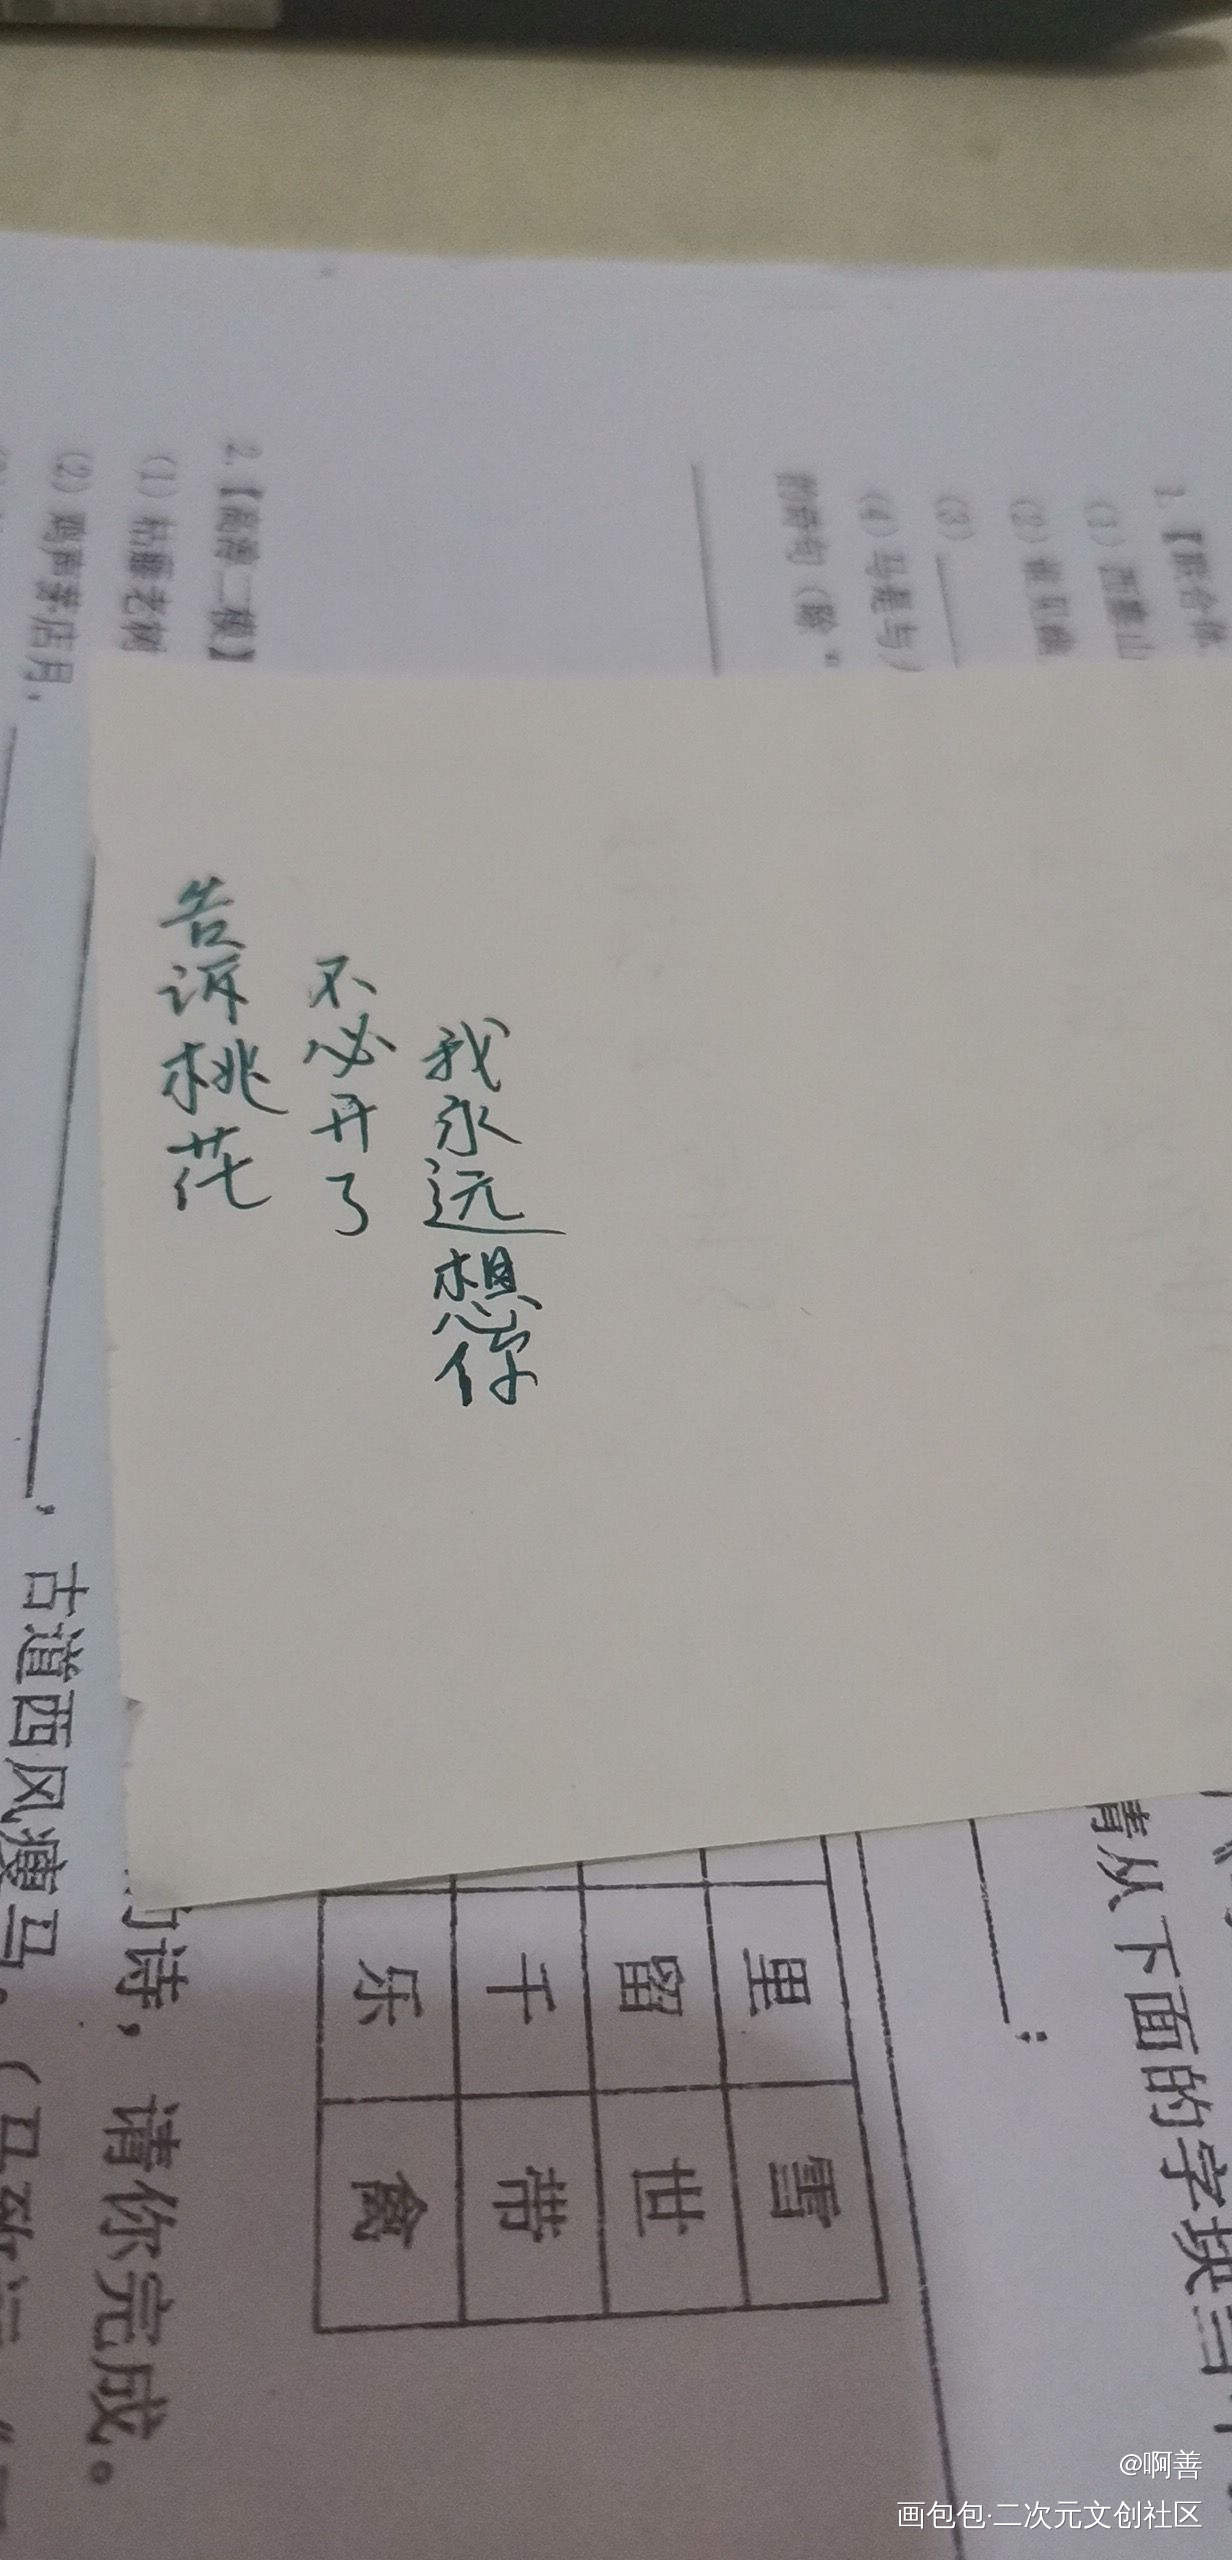 告诉桃花
不必开了
我永远想你
1.【
(1) 西塞山
(2)
(3)
(4) 马是与
的诗句（除“
2.【
二模】
(1) 枯藤老树
(2) 鸡声茅店月，
，古道西风瘦马。（马致远
诗，请你完成。
请从下面的字块
；
里 雪
留 世
千 带
乐 禽
@啊善
画包包·二次元文创社区